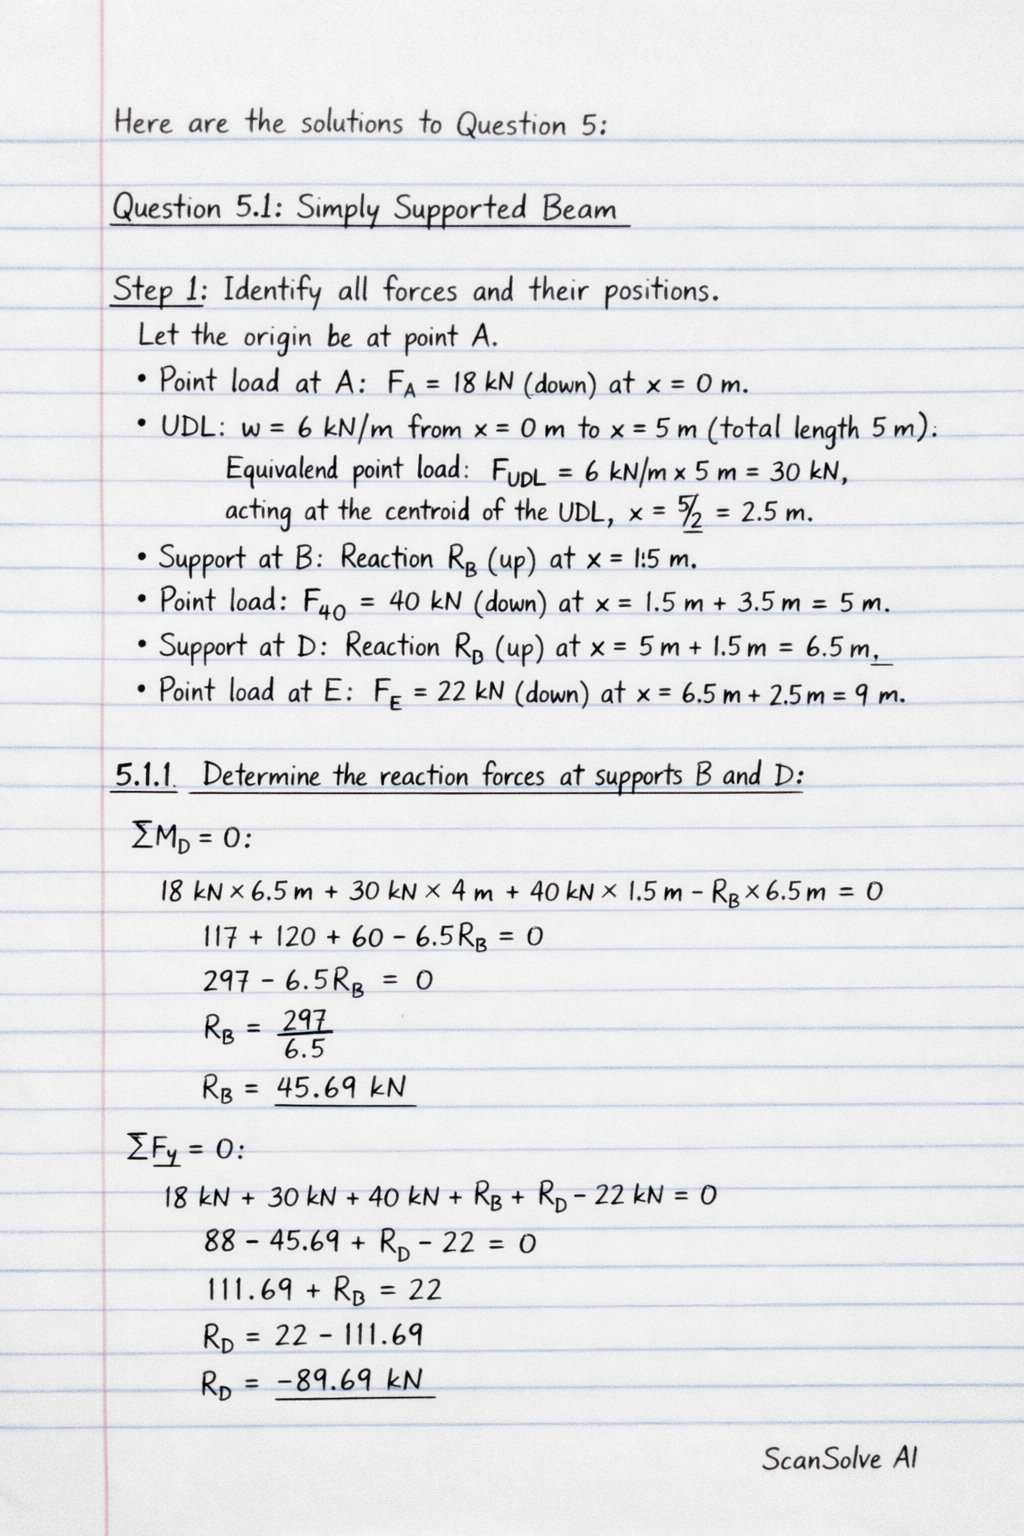 Here are the solutions to Question 5:
Question 5.1: Simply Supported Beam
Step 1: Identify all forces and their positions.
Let the origin be at point A.
• Point load at A: F_A = 18 kN (down) at x = 0 m.
• UDL: w = 6 kN/m from x = 0 m to x = 5 m (total length 5 m).
Equivalend point load: F_UDL = 6 kN/m x 5 m = 30 kN,
acting at the centroid of the UDL, x = 5/2 = 2.5 m.
• Support at B: Reaction R_B (up) at x = 1:5 m.
• Point load: F_40 = 40 kN (down) at x = 1.5 m + 3.5 m = 5 m.
• Support at D: Reaction R_D (up) at x = 5 m + 1.5 m = 6.5 m.
• Point load at E: F_E = 22 kN (down) at x = 6.5 m + 2.5 m = 9 m.
5.1.1. Determine the reaction forces at supports B and D:
ΣM_D = 0:
18 kN × 6.5 m + 30 kN × 4 m + 40 kN × 1.5 m - R_B × 6.5 m = 0
117 + 120 + 60 - 6.5R_B = 0
297 - 6.5R_B = 0
R_B = 297/6.5
R_B = 45.69 kN
ΣFy = 0:
18 kN + 30 kN + 40 kN + R_B + R_D - 22 kN = 0
88 - 45.69 + R_D - 22 = 0
111.69 + R_B = 22
R_D = 22 - 111.69
R_D = -89.69 kN
ScanSolve AI